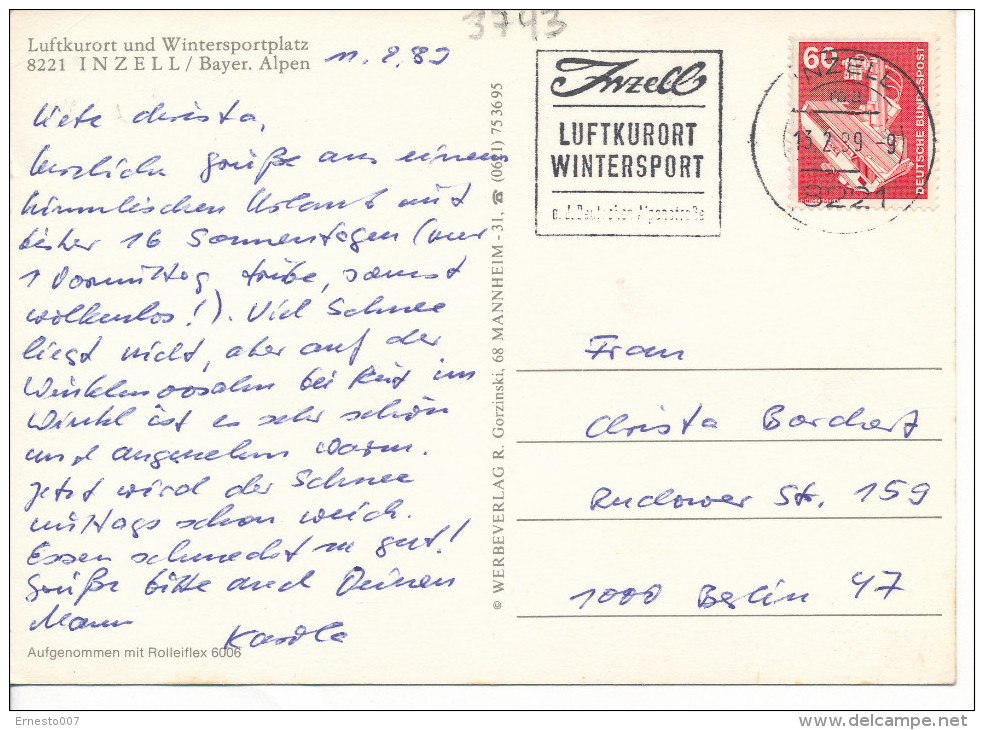 3743
Luftkurort und Wintersportplatz
8221 INZELL / Bayer. Alpen
11.2.89
Liebe Christa,
herzliche Grüße aus einem
himmlischen Urlaub mit
bisher 16 Sonnentagen (nur
1 Vormittag trübe, sonst
wolkenlos!). Viel Schnee
liegt nicht, aber auf der
Winklmoosalm bei Reit im
Winkl ist es sehr schön
und angenehm warm.
Jetzt wird der Schnee
mittags schon weich.
Essen schmeckt zu gut!
Grüße bitte auch Deinen
Mann
Karola
Aufgenommen mit Rolleiflex 6006
© WERBEVERLAG R. Gorzinski, 68 MANNHEIM - 31, ☎ (0621) 753695
Inzell
LUFTKURORT
WINTERSPORT
a. d. Deutschen Alpenstraße
INZELL
13.2.89 -9
8221
60
DEUTSCHE BUNDESPOST
Frau
Christa Borchert
Rudower Str. 159
1000 Berlin 47
Ernesto007
delcampe.net